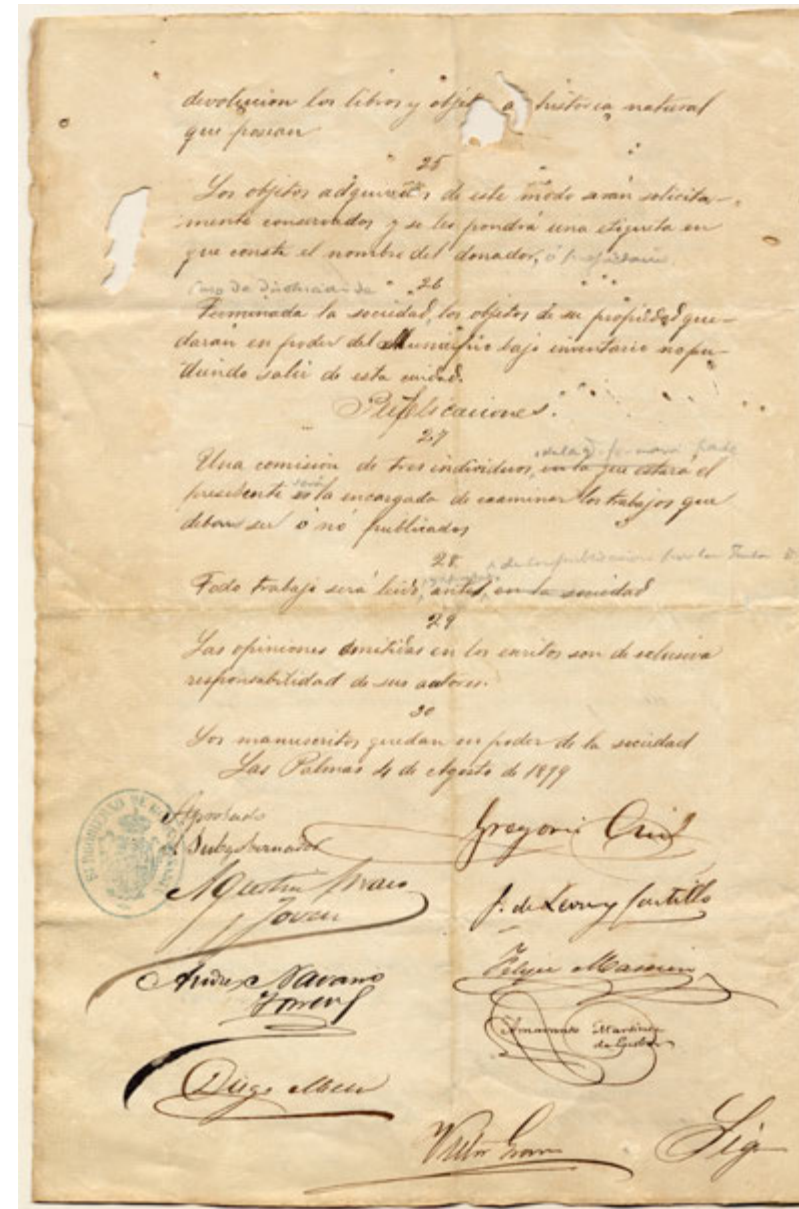 devolucion los libros y objet a historia natural
que posean
25
Los objetos adquiridos de este modo serán solicita-
mente conservados y se les pondrá una etiqueta en
que conste el nombre del donador, ó propietario.
Caso de disolucion de
26
Terminada la sociedad, los objetos de su propiedad que-
darán en poder del Municipio bajo inventario no pu-
diendo salir de esta ciudad.
Publicaciones.
27
de la q. formará parte
Una comision de tres individuos, en la que estará el
presidente será la encargada de examinar los trabajos que
deban ser ó nó publicados
28
de su publicacion por la Junta
Todo trabajo será leido, antes, en la sociedad
29
Las opiniones emitidas en los escritos son de esclusiva
responsabilidad de sus autores.
30
Los manuscritos quedan en poder de la sociedad
Las Palmas 4 de Agosto de 1879
Aprobado
El Subgobernador
Gregorio Chil
Agustin Bravo
Joven
J. de Leon y Castillo
Andres Navarro
Torrens
Felipe Massieu
Amaranto Martinez
de Escobar
Diego Mesa
Victor Grau